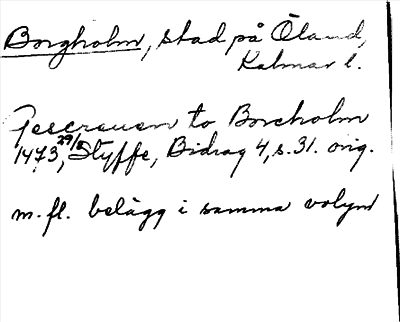 Borgholm, stad på Öland,
Kalmar l.
Gescreuen to Borcholm
1473 29/5, Styffe, Bidrag 4, s. 31. orig.
m.fl. belägg i samma volym